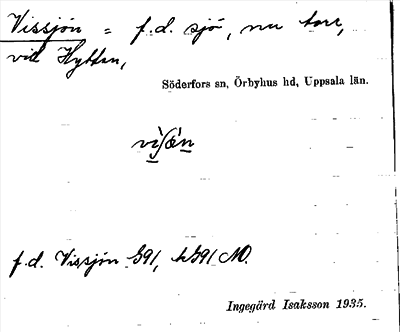 Vissjön = f.d. sjö, nu torr,
vid Hyttan,
Söderfors sn, Örbyhus hd, Uppsala län.
f.d. Vissjön
Ingegärd Isaksson 1935.